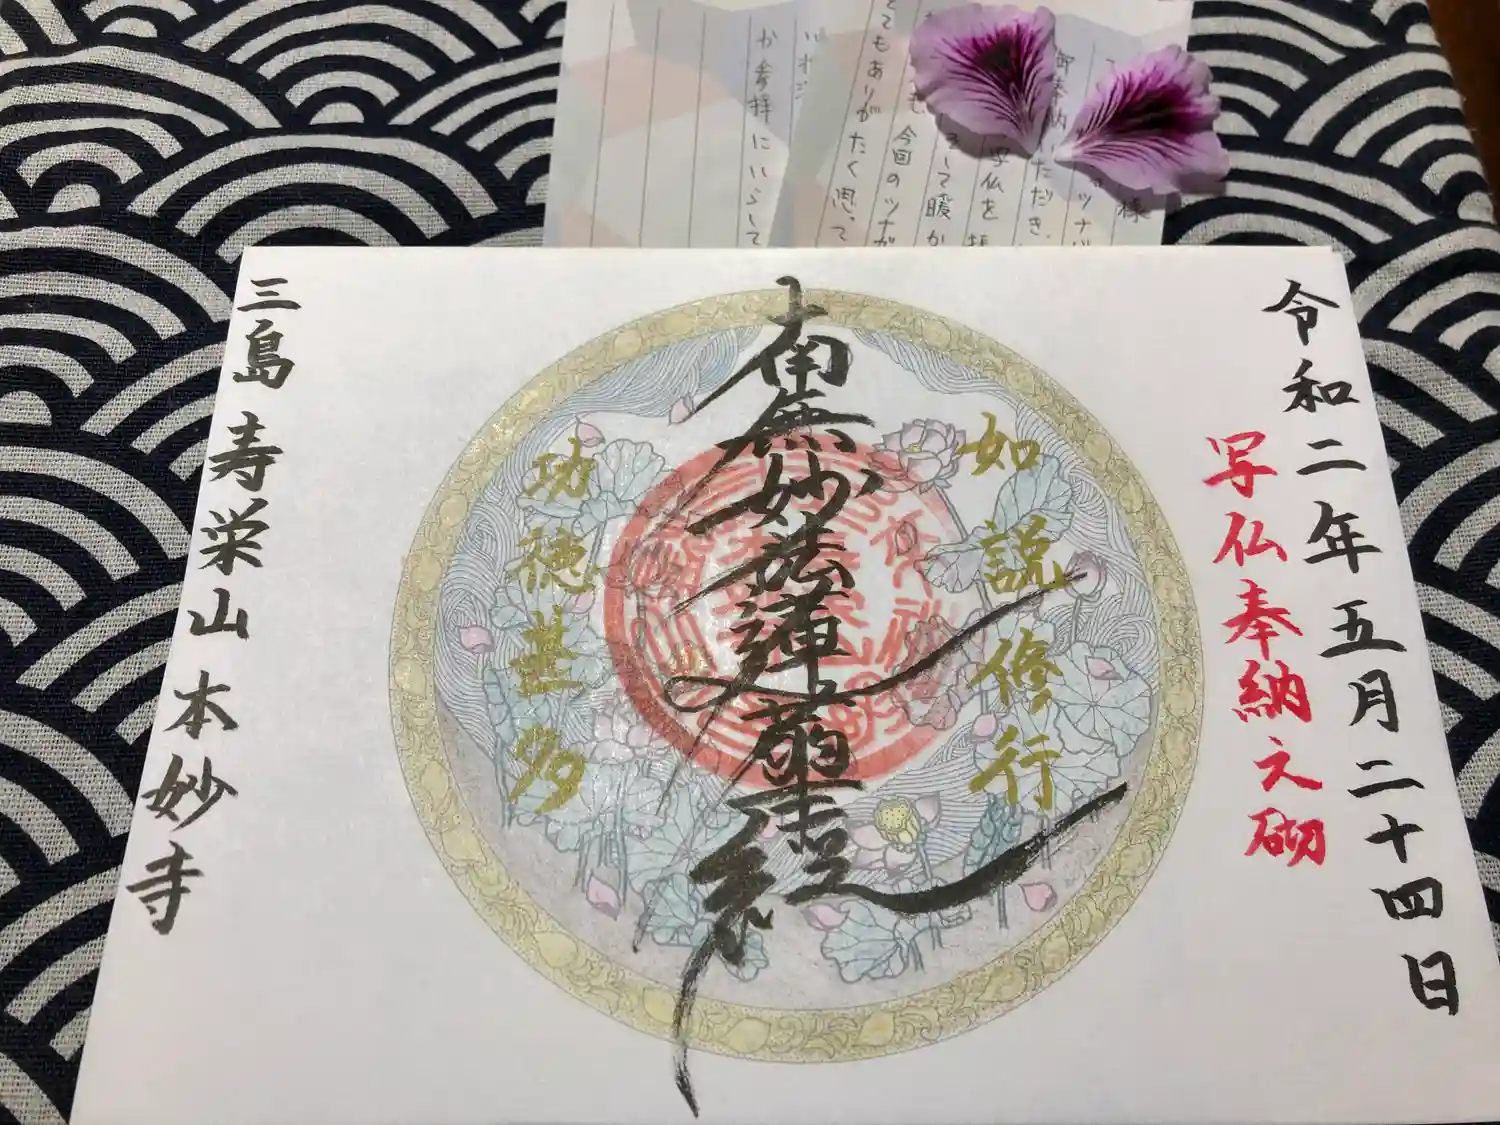 令和二年五月二十四日
写仏奉納之砌
如説修行
南無妙法蓮華経
功徳甚多
三島 寿栄山 本妙寺
様
御奉納いただき、
写仏を
して暖か
今回のツナガ
てもありがたく思って
か参拝にいらして